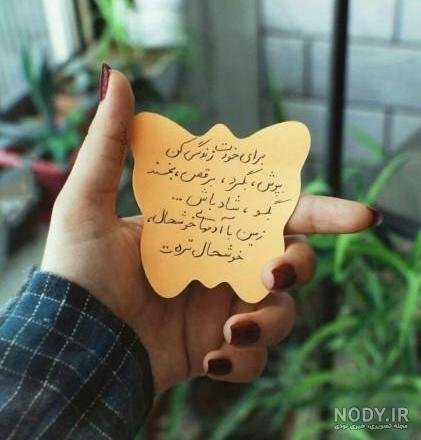 برای خودت زندگی کن
بپوش، بگرد، برقص، بخند
بگو، شاد باش ...
زمین با آدمهای خوشحال،
خوشحال تره
NODY.IR
مجله تصویری، خبری نودی